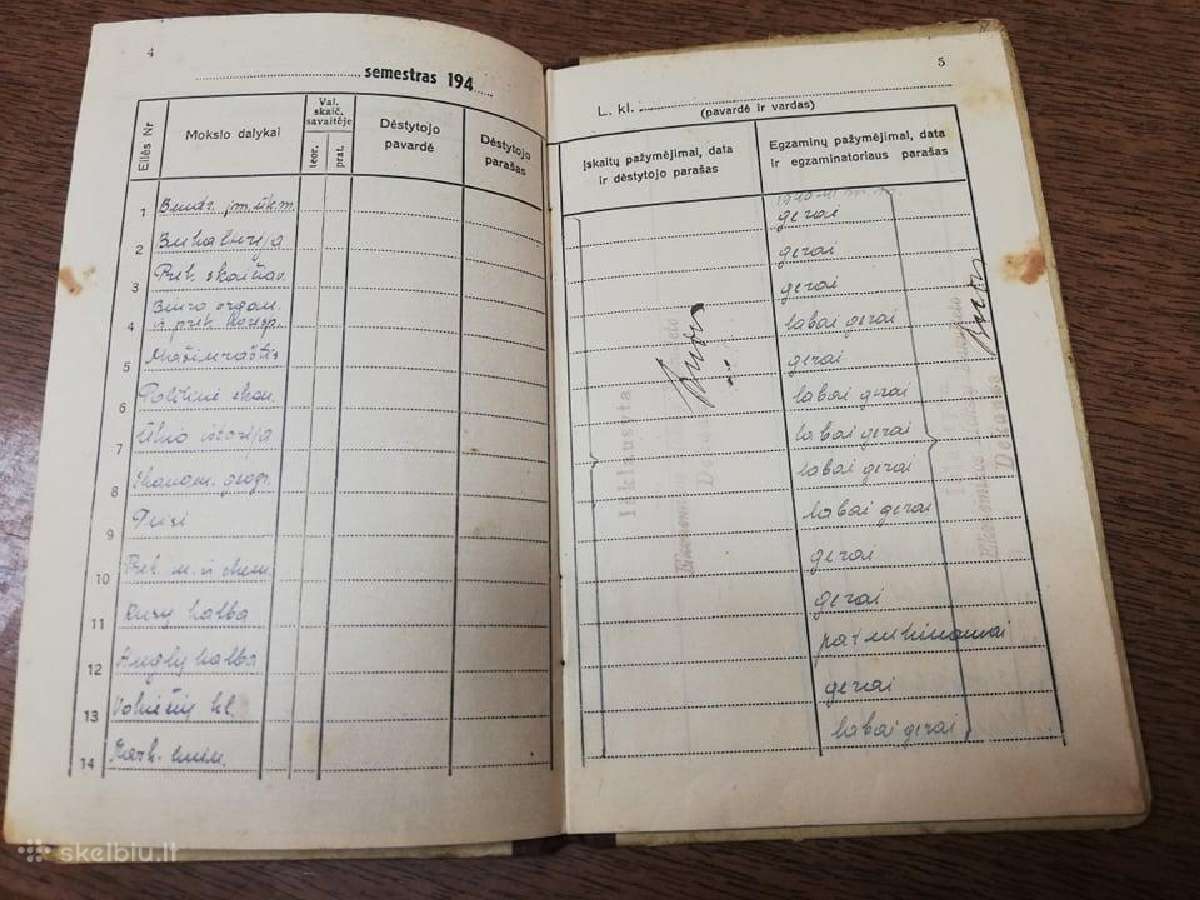 4
semestras 194
Eilės Nr
Mokslo dalykai
Val. skaič. savaitėje
teor.
prat.
Dėstytojo pavardė
Dėstytojo parašas
1 Bendr. įm. ūk. m.
2 Buhalterija
3 Prek. skaičiav.
4 Biuro organ. ir prek. koresp.
5 Mašinraštis
6 Politinė ekon.
7 Ūkio istorija
8 Ekonom. geogr.
9 Teisė
10 Prek. m. ir chem.
11 Rusų kalba
12 Anglų kalba
13 Vokiečių kl.
14
5
L. kl.
(pavardė ir vardas)
Įskaitų pažymėjimai, data ir dėstytojo parašas
Egzaminų pažymėjimai, data ir egzaminatoriaus parašas
gerai
gerai
gerai
labai gerai
gerai
labai gerai
labai gerai
labai gerai
labai gerai
gerai
gerai
patenkinamai
gerai
labai gerai
skelbiu.lt